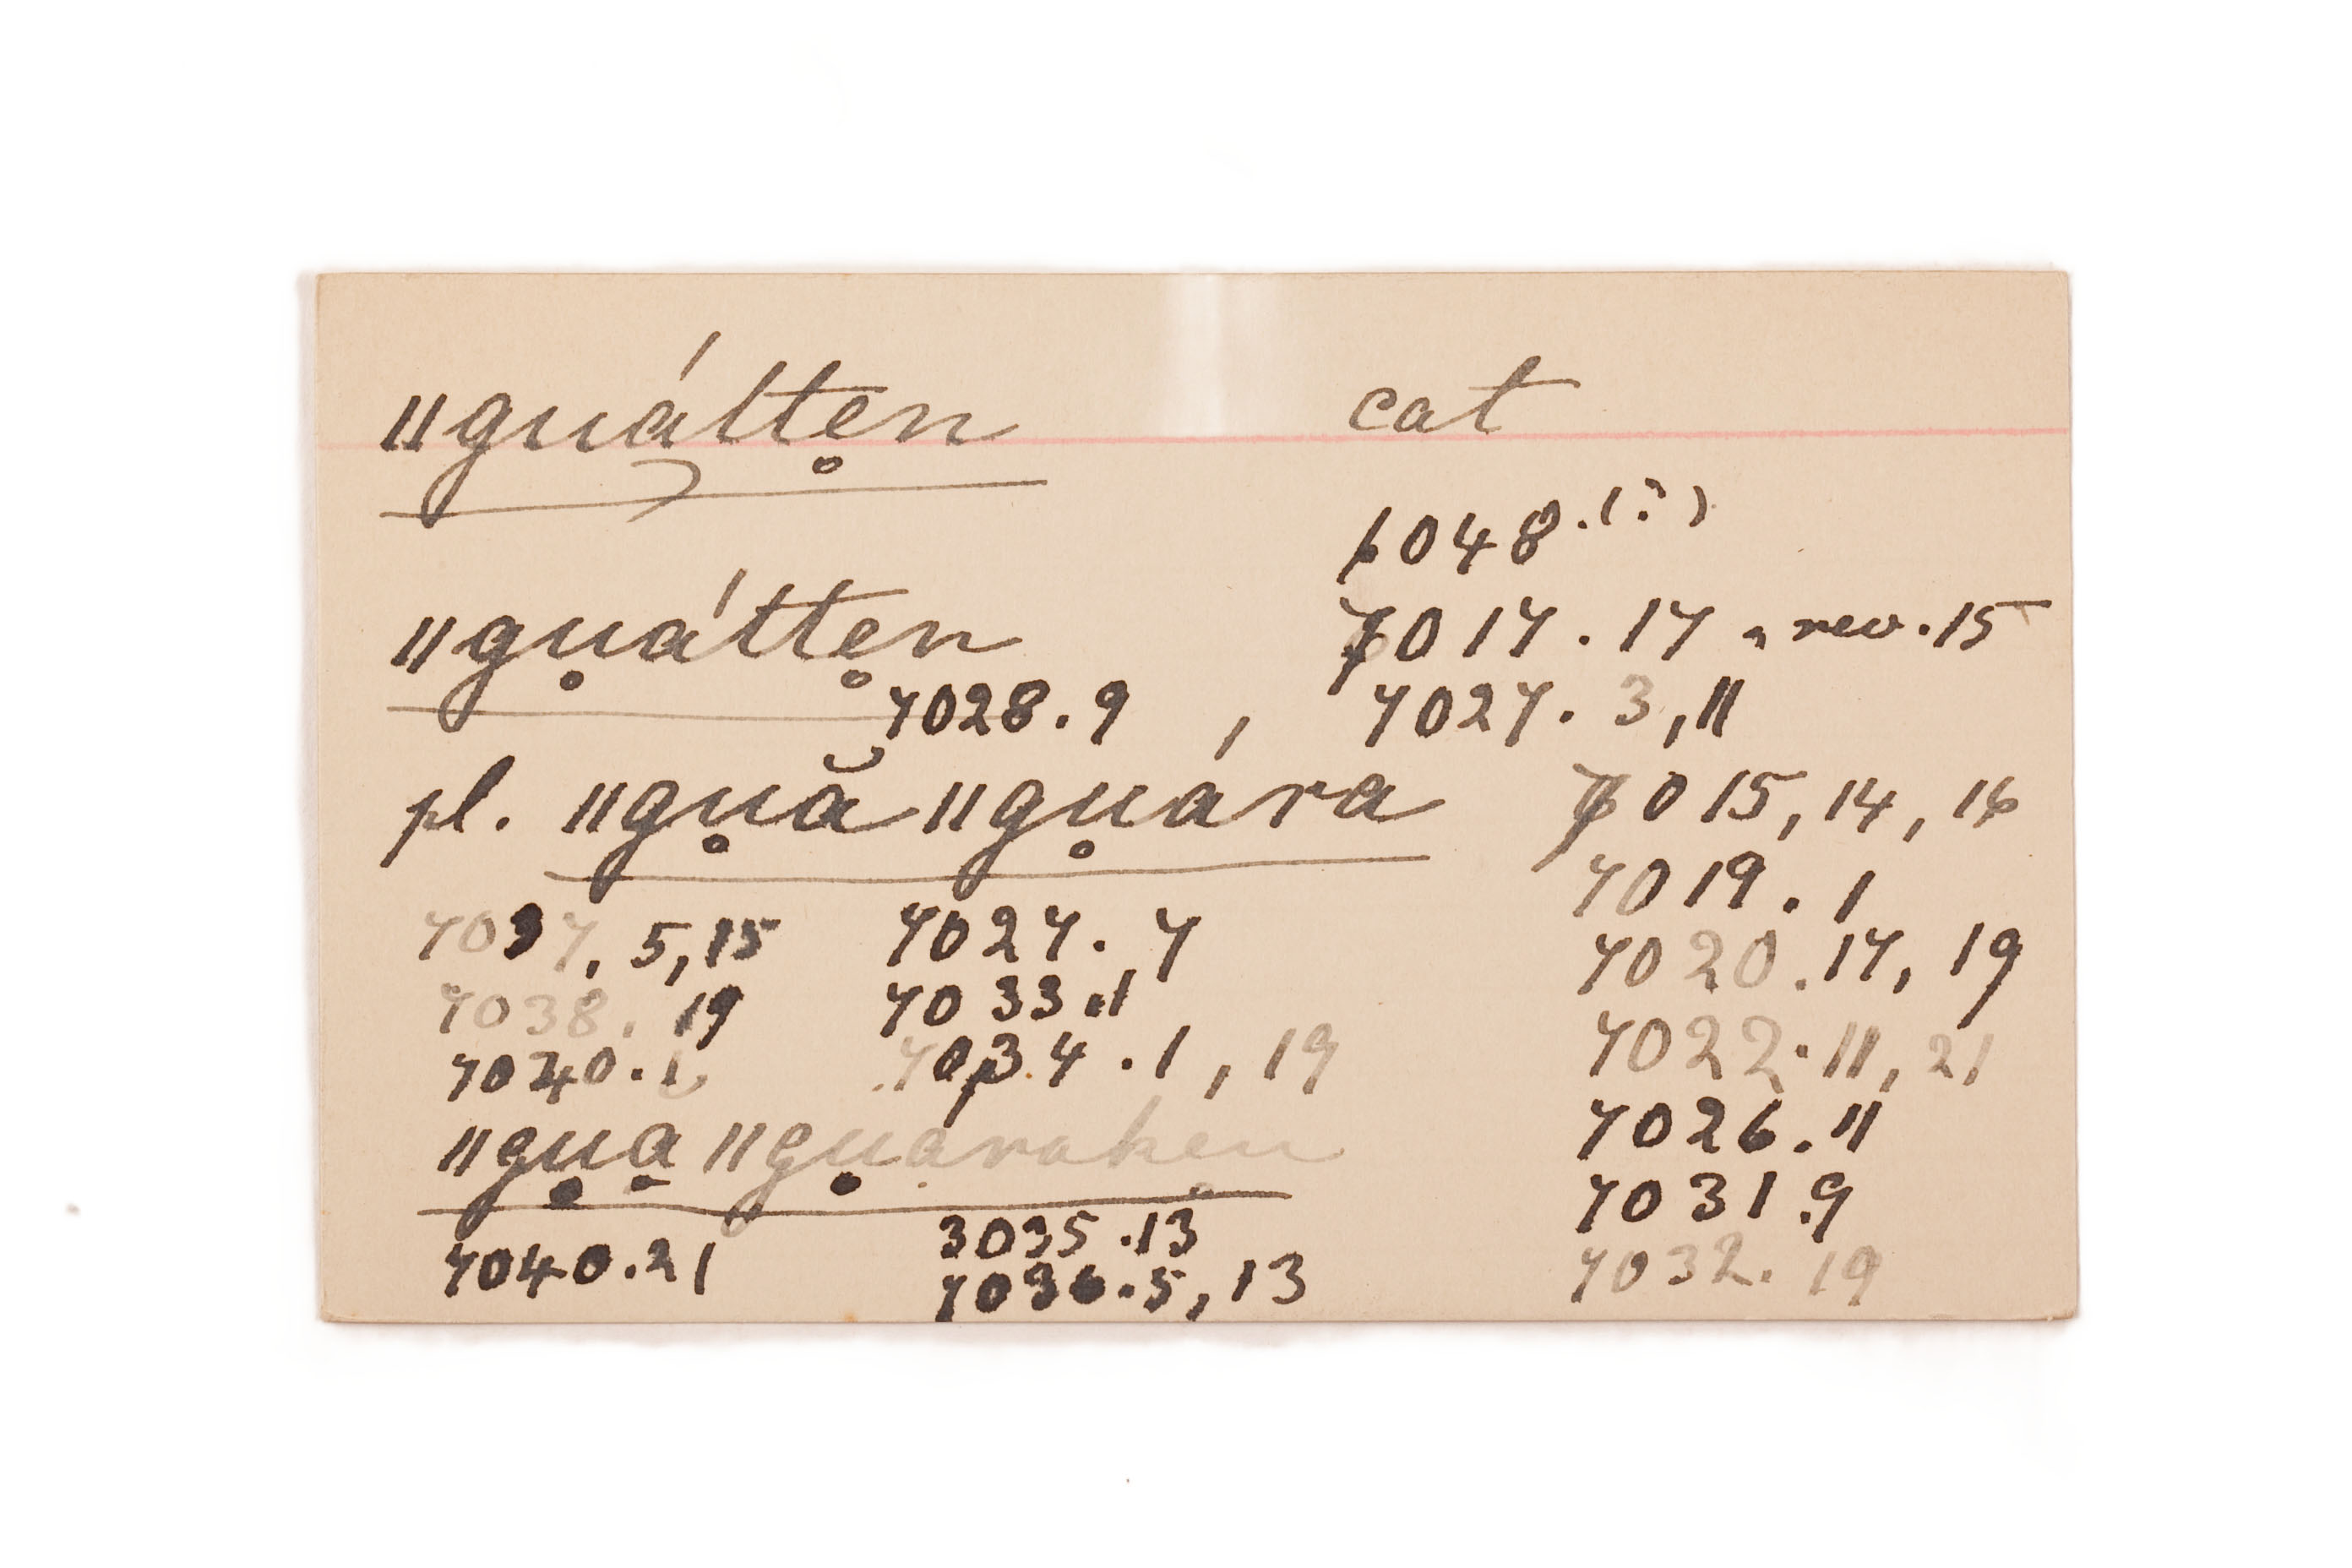 ǁguátten̥ cat
6048.(?)
ǁgu̥átte̥n 7017.17, rev.15
7028.9, 7027. 3,11
pl. ǁgu̥ă ǁgu̥ára 7015,14,16
7019.1
7037, 5,15 7027.7
7020.17, 19
7038. 19 7033.1
7022.11, 21
7040.1 7034.1, 19
7026.11
ǁgu̥a̠ ǁgu̥araken
7031.9
7040.21 3035.13
7032.19
7036.5,13